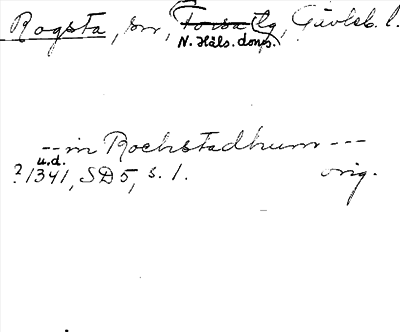 Rogsta, sn, Forsa tg, Gävleb. l.
N. Häls. doms.
-- in Rochstadhum ---
u.d.
? 1341, SD 5, s. 1. orig.